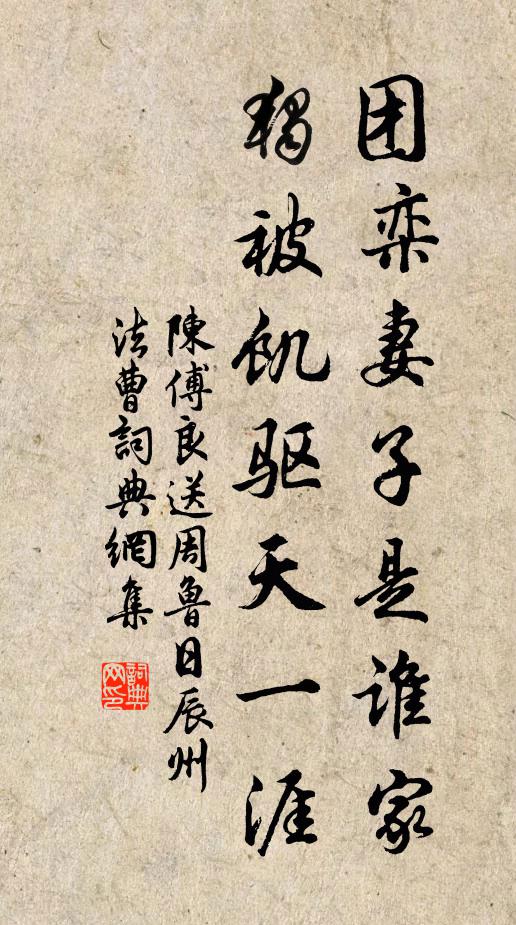 团栾妻子是谁家
独被饥驱天一涯
陳傅良送周魯日辰州
法曹詞典網集
詞典
网印